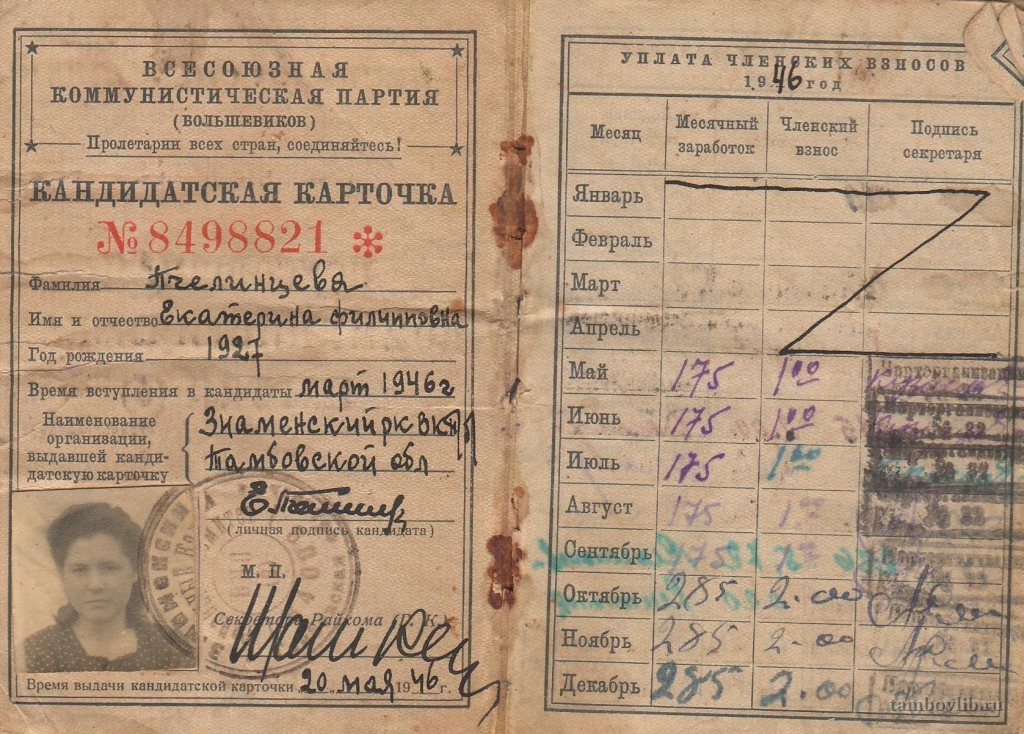 ВСЕСОЮЗНАЯ
КОММУНИСТИЧЕСКАЯ ПАРТИЯ
(БОЛЬШЕВИКОВ)
Пролетарии всех стран, соединяйтесь!
КАНДИДАТСКАЯ КАРТОЧКА
№ 8498821
Фамилия Пчелинцева
Имя и отчество Екатерина Филипповна
Год рождения 1927
Время вступления в кандидаты март 1946 г
Наименование организации, выдавшей кандидатскую карточку
Знаменский рк ВКП
Тамбовской обл
(личная подпись кандидата)
М. П.
Секретарь Райкома
Время выдачи кандидатской карточки 20 мая 1946 г.
УПЛАТА ЧЛЕНСКИХ ВЗНОСОВ
1946 год
Месяц Месячный заработок Членский взнос Подпись секретаря
Январь
Февраль
Март
Апрель
Май 175 1 00
Июнь 175 1 00
Июль 175 1 00
Август 175
Сентябрь 175
Октябрь 285 2.00
Ноябрь 285 2.00
Декабрь 285 2.00
tambovlib.ru